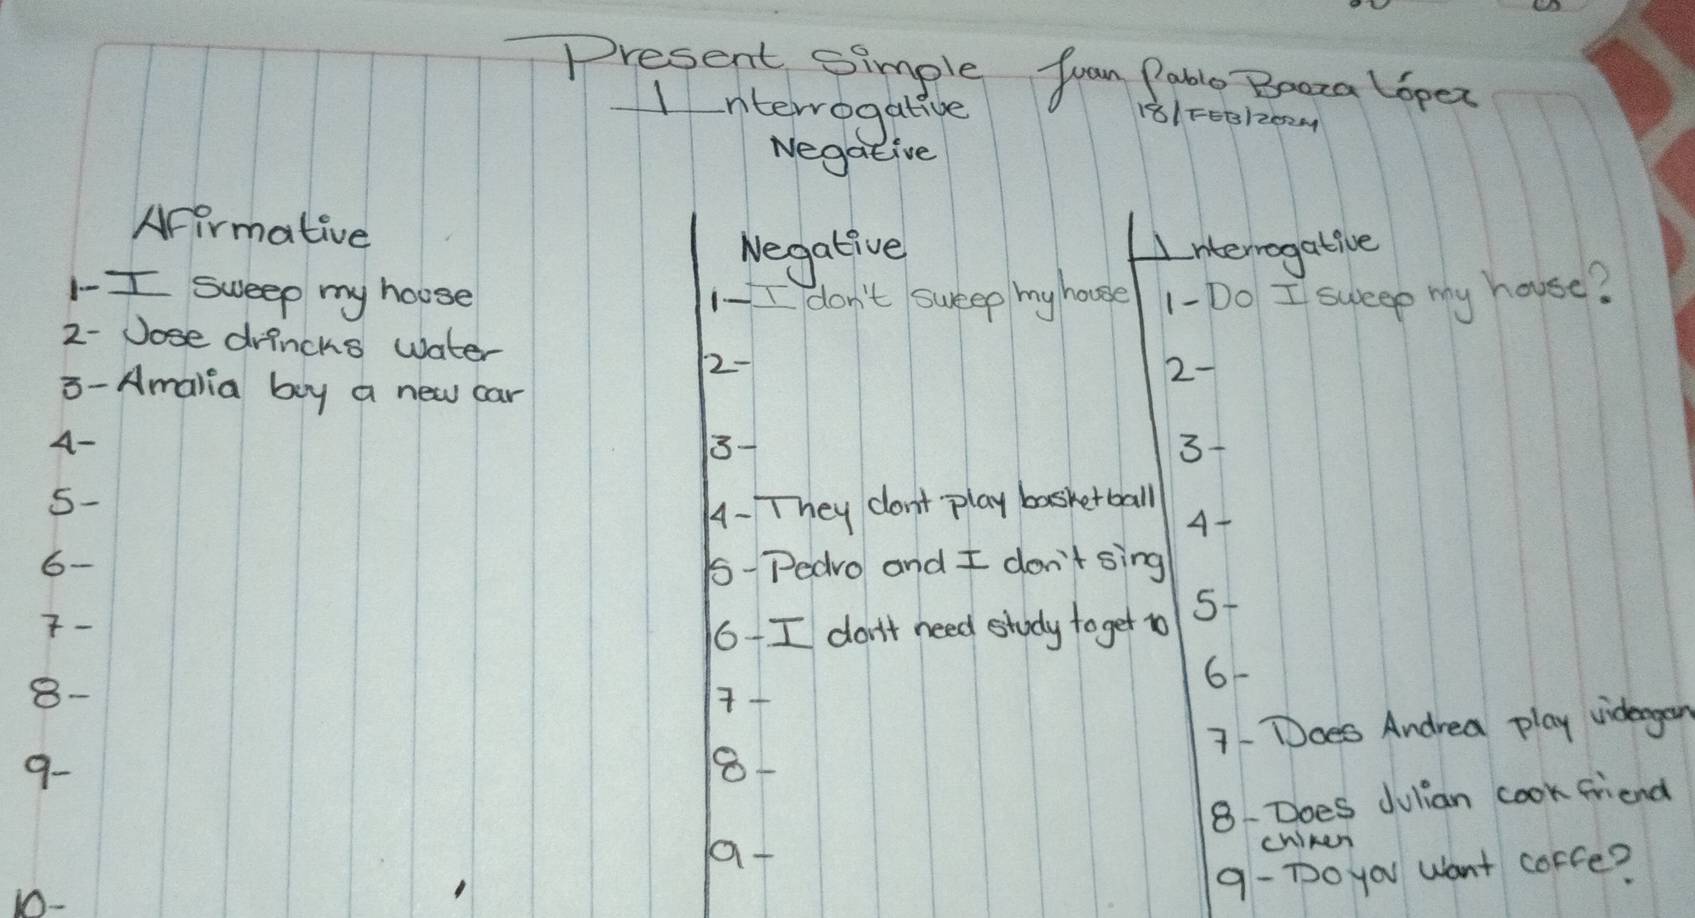 Present Simple
Interrogative
Negative
Juan Pablo Baoza López
18/FEB/2024
Afirmative
1- I sweep my house
2- Jose drincks water
3- Amalia buy a new car
4-
5-
6-
7-
8-
9-
10-
Negative
1- I don't sweep my house
2-
3-
4- They dont play basketball
5- Pedro and I don't sing
6- I don't need study to get 10
7-
8-
9-
Interrogative
1- Do I sweep my house?
2-
3-
4-
5-
6-
7- Does Andrea play
8- Does Julian cook friend
chiken
9- Do you want coffe?